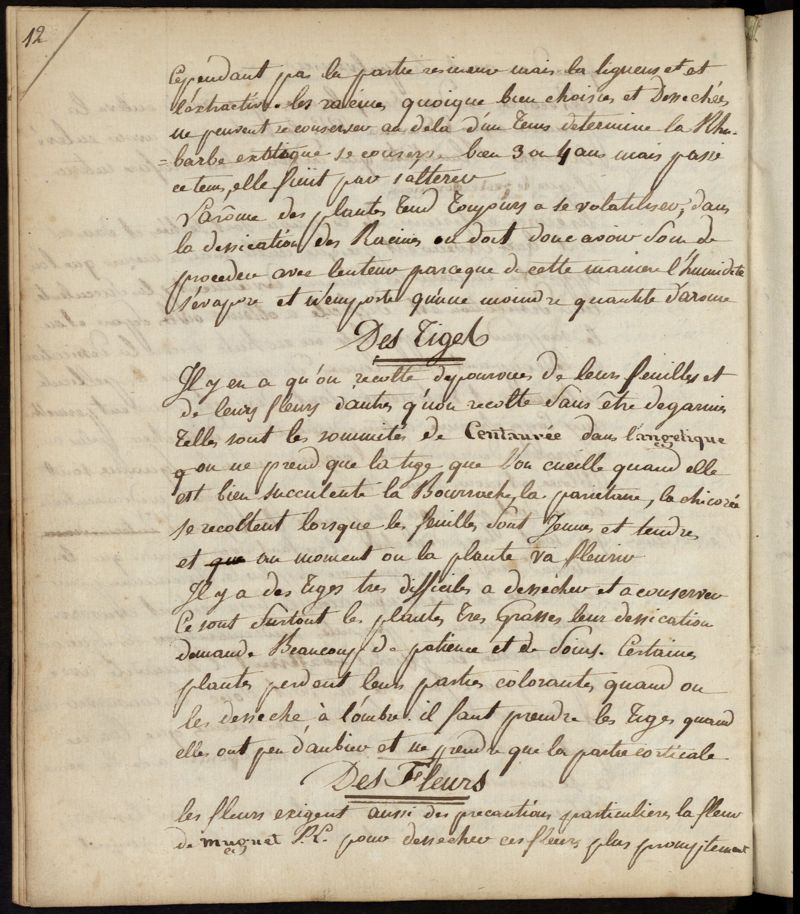 12
Cependant pas la partie resineuse mais la ligneuse et et
l'extractive. les racines quoique bien choisies et Dessechées
ne peuvent se conserver au dela d'un tems determine la Rhu-
=barbe exotique se conserve bien 3 ou 4 ans mais passé
ce tems, elle finit par s'altérer
L'arôme des plantes tend Toujours a se volatiliser, dans
la dessication des Racines on doit donc avoir soin de
proceder avec lenteur parceque de cette maniere l'humidite
s'évapore et n'emporte qu'une moindre quantite d'arome
Des Tiges
Il y en a qu'on recolte depourvues de leurs feuilles et
de leurs fleurs d'autres qu'on recolte sans être degarnies
Telles sont les sommités de Centaurée dans l'angelique
on ne prend que la tige que l'on cueille quand elle
est bien succulente la Bourrache, la parietaire, la chicorée
se recoltent lorsque les feuilles sont Jeunes et tendres
et que au moment ou la plante va fleurir
Il y a des Tiges tres difficiles a dessécher et a conserver
Ce sont surtout les plantes tres Grasses leur dessication
demande Beaucoup de patience et de soins. Certaines
plantes perdent leurs parties colorantes quand on
les desseche à l'ombre. il faut prendre les Tiges quand
elles ont peu d'aubier et ne prendre que la partie corticale
Des Fleurs
les fleurs exigent aussi des precautions particulieres la fleur
de muguet P.E. pour dessecher ces fleurs plus promptement